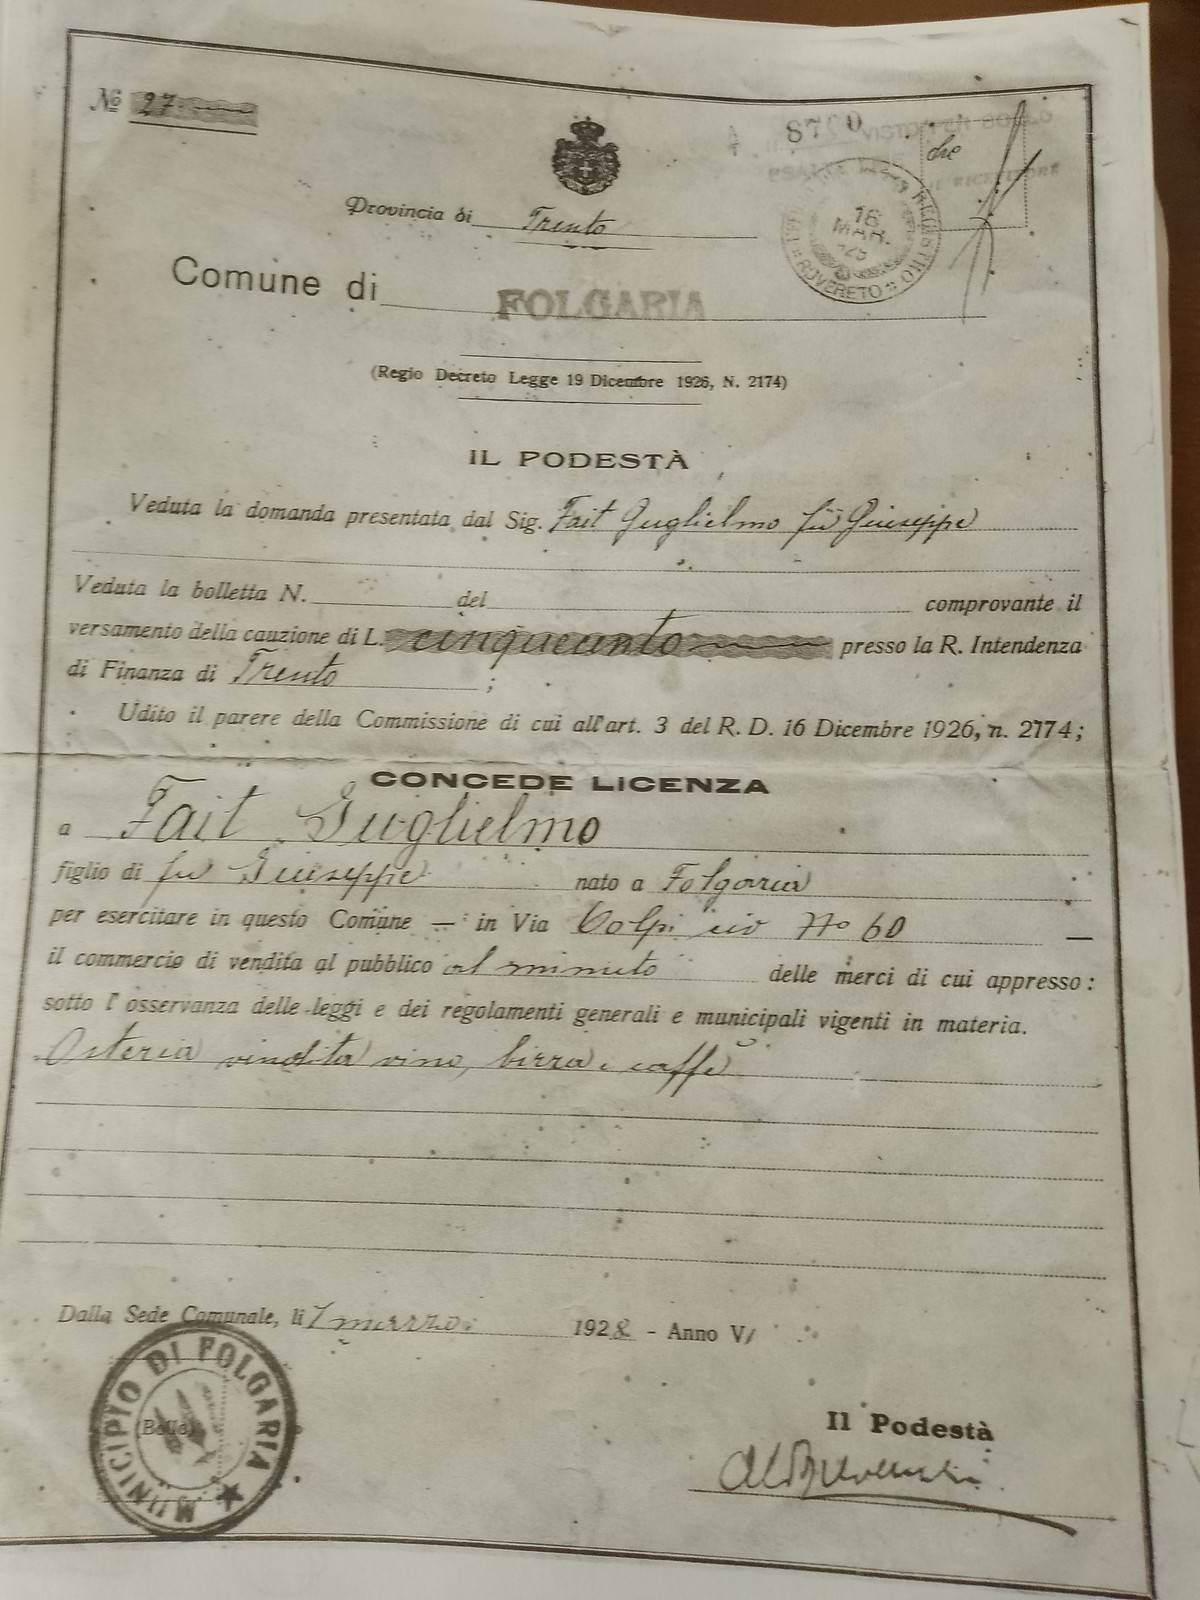 № 27
8790
VISTO PER BOLLO
IL RICEVITORE
REGISTRO
ROVERETO
16
MAR.
Provincia di Trento
Comune di FOLGARIA
(Regio Decreto Legge 19 Dicembre 1926, N. 2174)
IL PODESTÀ
Veduta la domanda presentata dal Sig. Fait Guglielmo fu Giuseppe
Veduta la bolletta N. del comprovante il
versamento della cauzione di L. cinquecento presso la R. Intendenza
di Finanza di Trento ;
Udito il parere della Commissione di cui all'art. 3 del R. D. 16 Dicembre 1926, n. 2174;
CONCEDE LICENZA
a Fait Guglielmo
figlio di fu Giuseppe nato a Folgaria
per esercitare in questo Comune — in Via Volpi civ No 60 —
il commercio di vendita al pubblico al minuto delle merci di cui appresso:
sotto l'osservanza delle leggi e dei regolamenti generali e municipali vigenti in materia.
Osteria vindita vino, birra e caffè
Dalla Sede Comunale, li 7 marzo 1928 - Anno VI
MUNICIPIO DI FOLGARIA
(Bollo)
Il Podestà